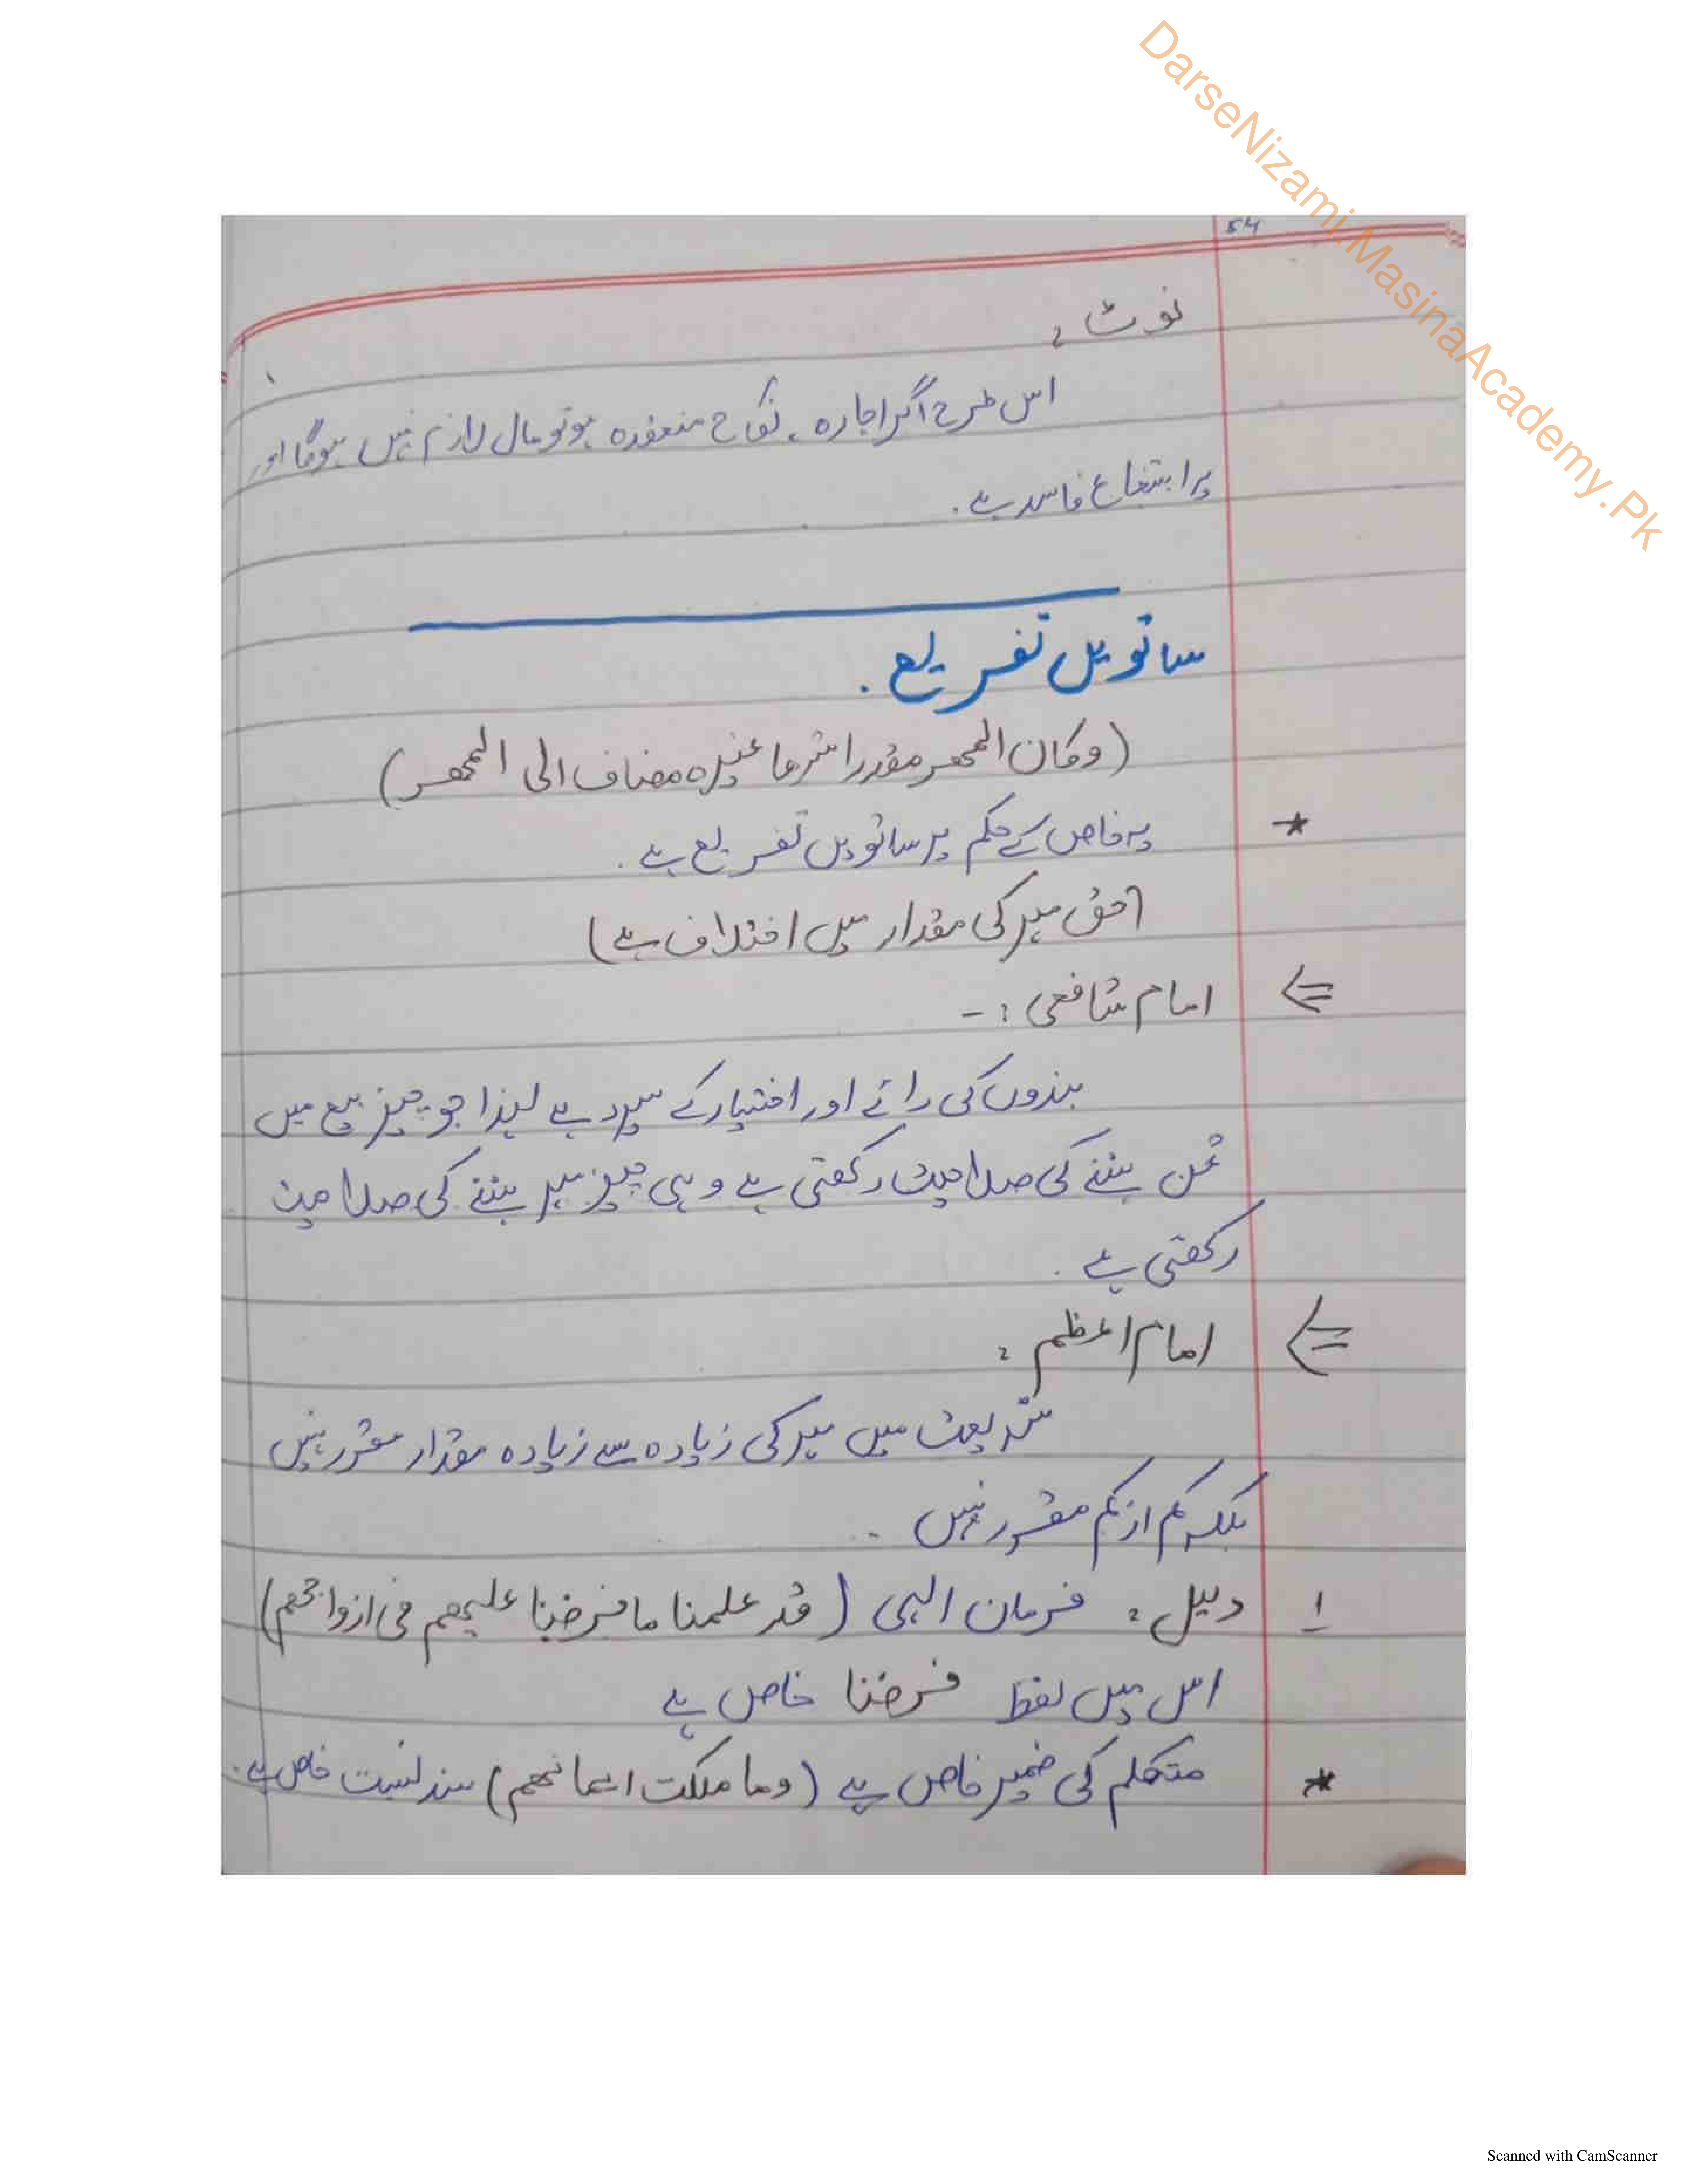 DarseNizami.MasinaAcademy.Pk
54
نوٹ :
اس طرح اگر اجارہ ، نکاح منعقدہ ہو تو مال لازم نہیں ہوگا اور
پر ابتغاع فاسد ہے ۔
ساتویں تفریع ۔
(وکان المھر مقدرا شرعا غیرہ مضاف الی المھر)
* یہ خاص کے حکم پر ساتویں تفریع ہے ۔
(حق مہر کی مقدار میں اختلاف ہے)
⇐ امام شافعی :-
بندوں کی رائے اور اختیار کے سپرد ہے لہذا جو چیز بیع میں
ثمن بننے کی صلاحیت رکھتی ہے وہی چیز مہر بننے کی صلاحیت
رکھتی ہے ۔
⇐ امام اعظم :
شریعت میں مہر کی زیادہ سے زیادہ مقدار مقرر نہیں
بلکہ کم از کم مقرر نہیں ۔
1 دلیل : فرمان الہی (قد علمنا ما فرضنا علیھم فی ازواجھم)
اس میں لفظ فرضنا خاص ہے
* متکلم کی ضمیر خاص ہے (وما ملکت ایمانھم) نسبت خاص ہے ۔
Scanned with CamScanner